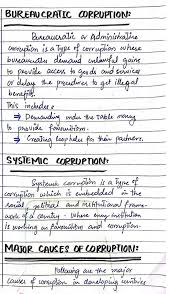 BUREAUCRATIC CORRUPTION:
Bureaucratic or Administrative
corruption is a type of corruption where
bureaucrats demand unlawful gains
to provide access to goods and services
or delay the procedures to get illegal
benefits.
This includes
⇒ Demanding under the table money
to provide favouritism.
⇒ Creating loopholes for their partners.
SYSTEMIC CORRUPTION:
Systemic corruption is a type of
corruption which is embedded in the
social, political and institutional frame-
work of a country - where every institution
is working on favouritism and corruption.
MAJOR CAUSES OF CORRUPTION:
Following are the major
causes of corruption in developing countries